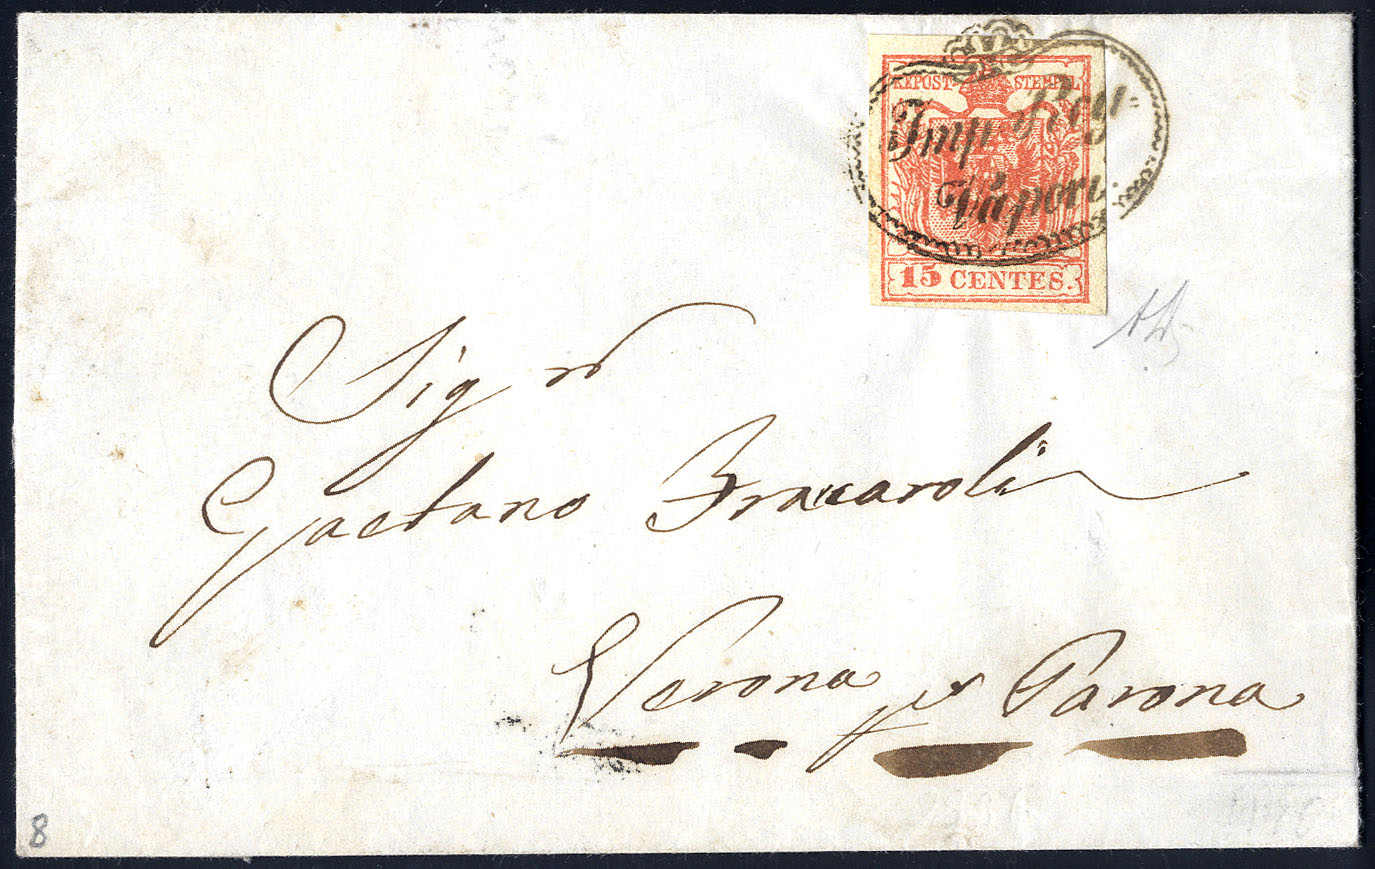 KKPOST-STEMPEL
Imp. Reg.
Vapori.
15 CENTES.
Sigr
Gaetano Bracaroli
Verona px Parona
8